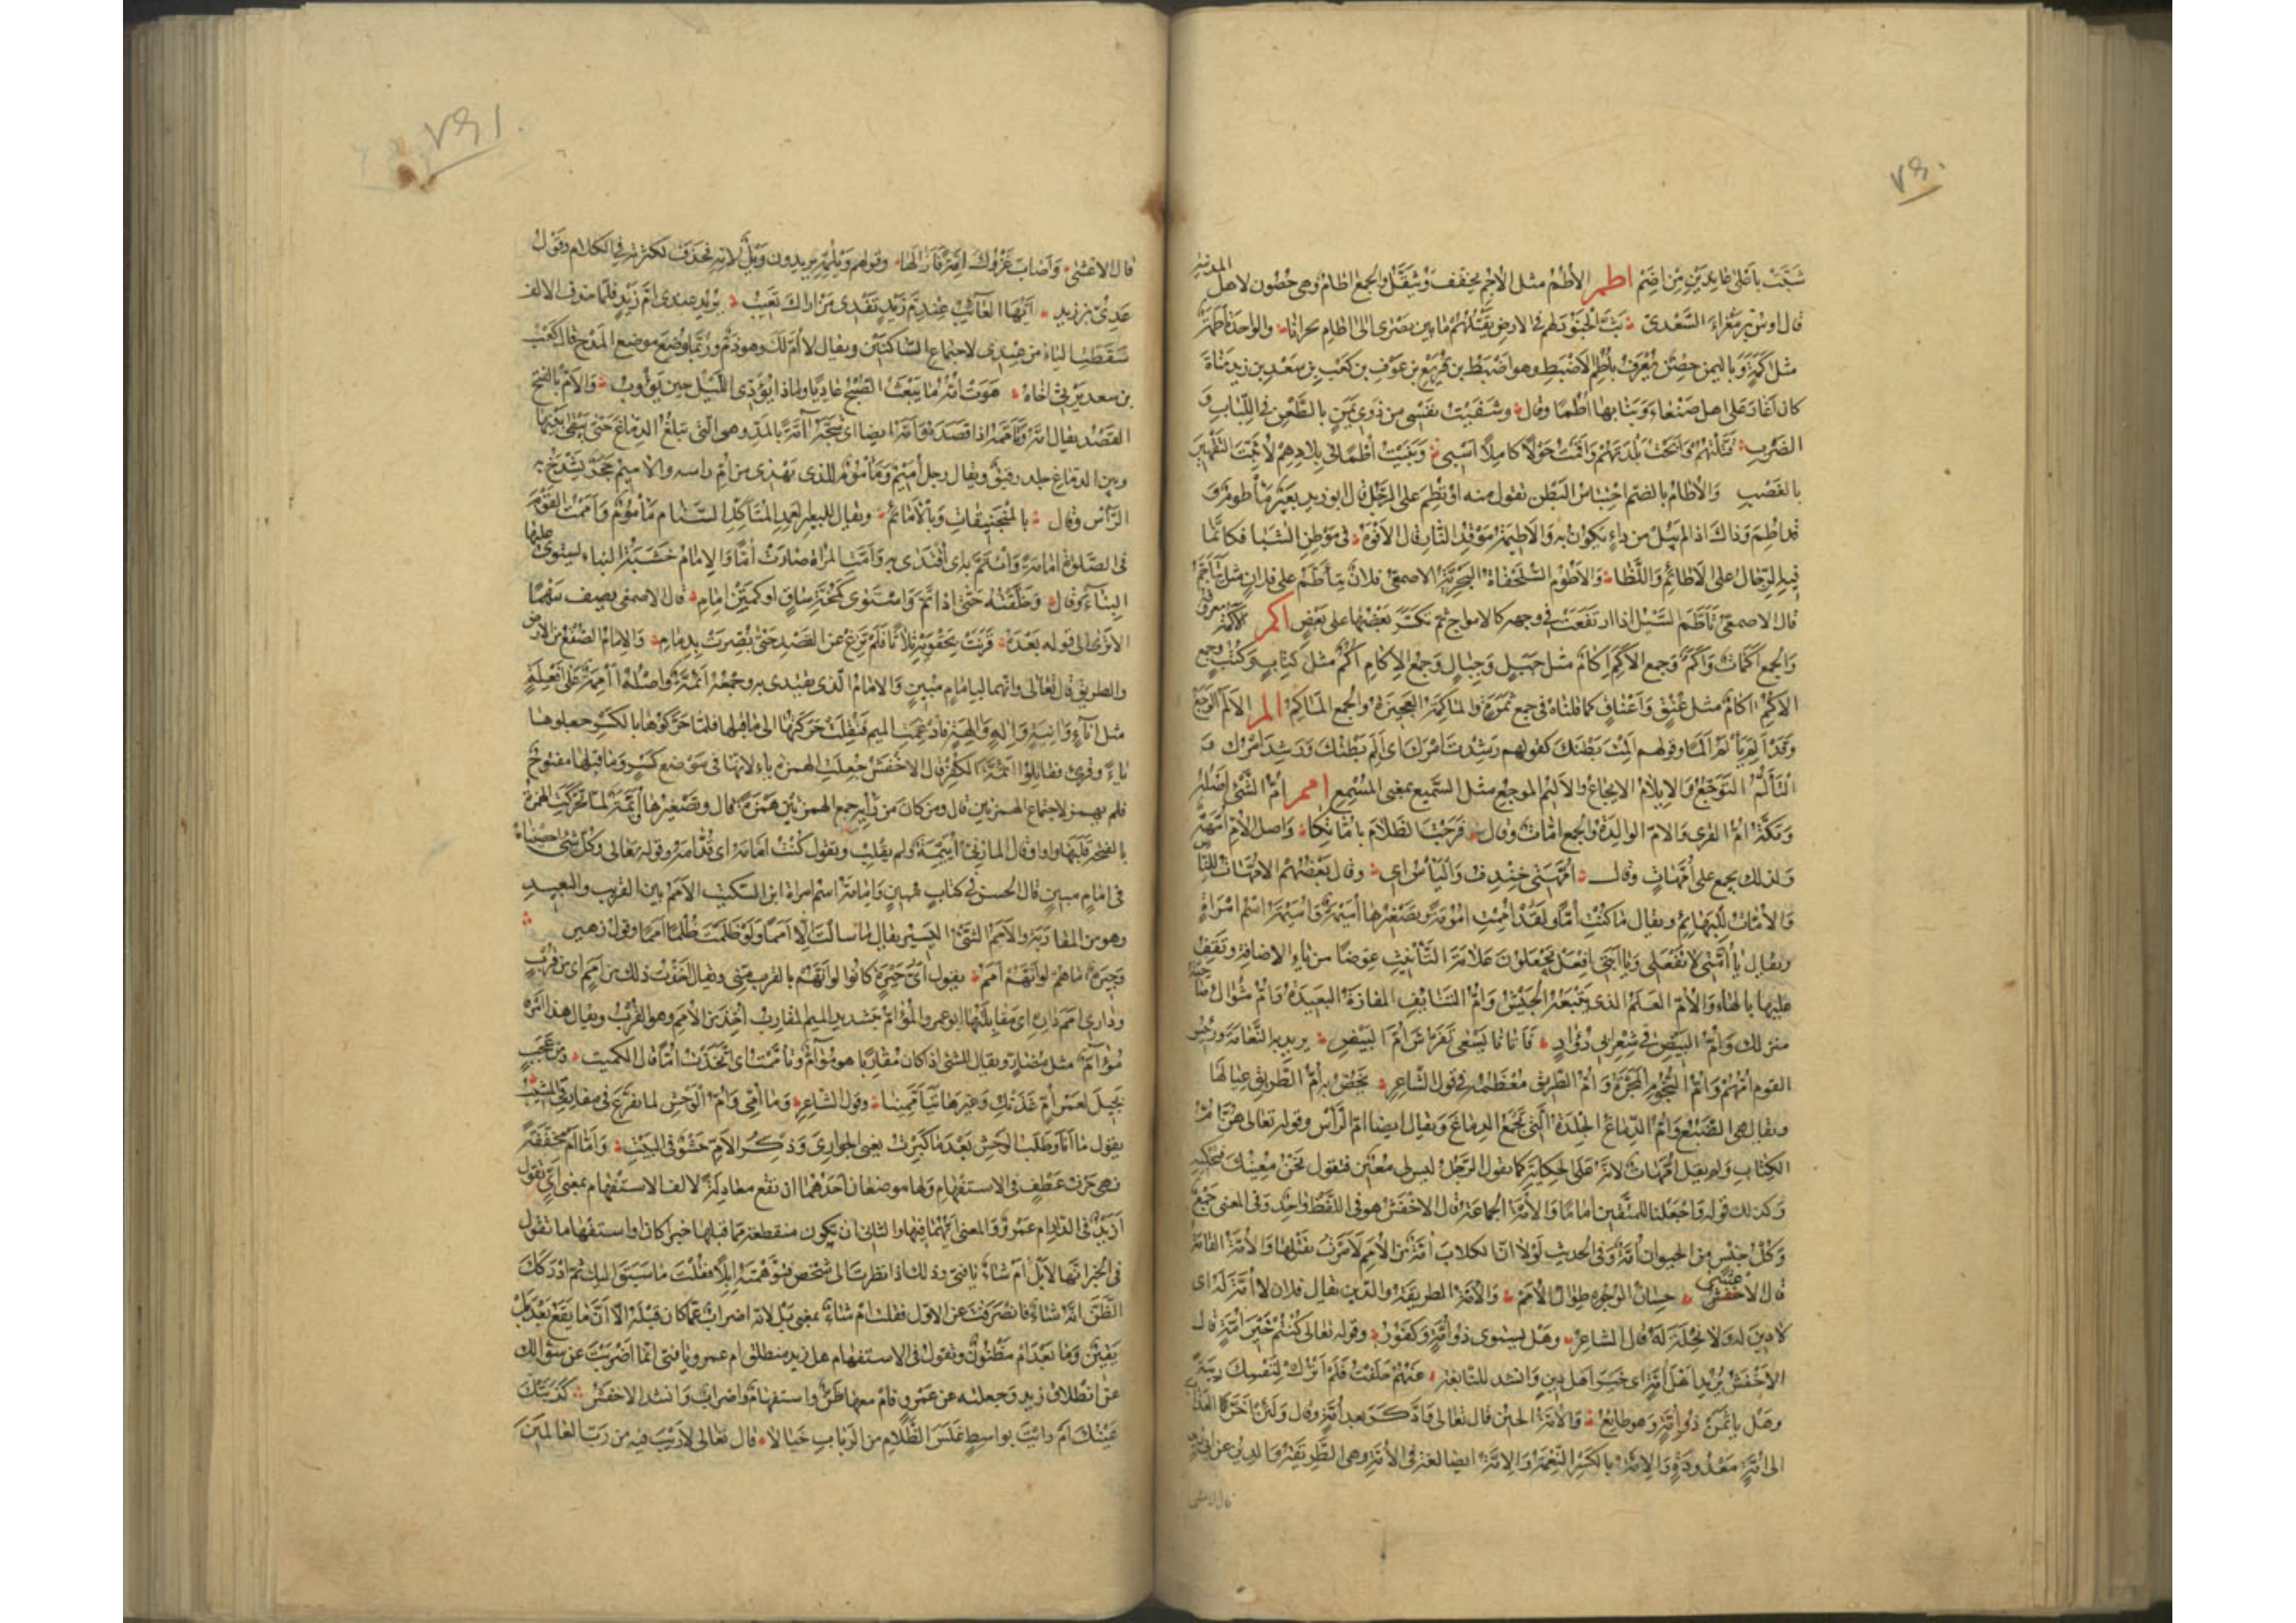 ٧٩٠
شبّت بأعلى عاندين من إضم اطم الأطم مثل الأجم يخفف ويثقل والجمع آطام وهى حصون لاهل المدينة
قال اوس بن مغراء السعدى بث الجنود لهم فى الارض يقتلهم ما بين بصرى الى آطام نجرانا والواحدة أطمة
مثل أكمة وباليمن حصن يعرف بأطم الاضبط وهو اضبط بن قريع بن عوف بن كعب بن سعد بن زيد مناة
كان اغار على اهل صنعاء وبنا بها أطما وقال وشفيت نفسى من ذوى يمن بالطعن فى اللبات و
الضرب قتلتهم وأبحت بلدتهم واقمت حولا كاملا اسبى وبنيت أطما فى بلادهم لأثبت التقهير
بالغصب والأطام بالضم احتباس البطن تقول منه اؤتطم على الرجل قال ابو زيد بعير مأطوم و
قد اطم وذلك اذا لم يبل من داء يكون به والاطيمة موقد النار قال الافوه فى موطن الشبا فكانما
فيه الرجال على الاطائم واللظا والأطوم السلحفاة البحرية الاصمعى فلان يتأطم على فلان مثل يتأجم
قال الاصمعى تأطم السيل اذا ارتفعت فى وجهه كالامواج ثم تكسر بعضها على بعض اكم الأكمة معروفة
والجمع أكمات وأكم وجمع الأكم إكام مثل جبل وجبال وجمع الإكام أكم مثل كتاب وكتب وجمع
الأكم آكام مثل عنق واعناق كما قلناه فى جمع ثمرة والمأكمة العجيزة والجمع المآكم الم الألم الوجع
وقد ألم يألم ألما وقولهم ألمت بطنك كقولهم رشدت أمرك اى ألم بطنك ورشد أمرك
التألم التوجع والإيلام الايجاع والأليم الموجع مثل السميع بمعنى المسمع امم أم الشىء أصله
ومكة أم القرى والامّ الوالدة والجمع أمات وقال فرجت الظلام بأماتكا واصل الأم أمهة
ولذلك يجمع على أمهات وقال أمهتى خندف والياس ابى وقال بعضهم الامهات للناس
والأمات للبهائم ويقال ما كنت أما ولقد أممت أمومة وتصغيرها أميمة وأميمة اسم امرأة
ويقال يا أمتى لا تفعلى ويا ابتى افعل يجعلون علامة التأنيث عوضا من ياء الاضافة وتقف
عليها بالهاء والأم العلم الذى يتبعه الجيش وأم التنائف المفازة البعيدة وأم مثواك صاحبة
منزلك وأم البيض فى شعر ابى دؤاد فأتانا يسعى تفرش أم البيض يريد به النعامة ورئيس
القوم أمهم وأم النجوم المجرة وأم الطريق معظمه فى قول الشاعر تخص به أم الطريق عيالها
ويقال هى الضبع وأم الدماغ الجلدة التى تجمع الدماغ ويقال ايضا ام الرأس وقوله تعالى هن أم
الكتاب ولم يقل أمهات لانه على الحكاية كما يقول الرجل ليس لى معين فتقول نحن معينك فتحكيه
وكذلك قوله واجعلنا للمتقين اماما والأمة الجماعة قال الاخفش هو فى اللفظ واحد وفى المعنى جمع
وكل جنس من الحيوان أمة وفى الحديث لولا ان الكلاب أمة من الأمم لأمرت بقتلها والأمة القامة
قال الاعشى حسان الوجوه طوال الأمم والأمة الطريقة والدين يقال فلان لا أمة له اى
لا دين له ولا نحلة له قال الشاعر وهل يستوى ذو أمة وكفور وقوله تعالى كنتم خير أمة قال
الاخفش يريد اهل أمة اى خير اهل دين وانشد للنابغة حلفت فلم اترك لنفسك ريبة
وهل يأثمن ذو أمة وهو طائع والأمة الحين قال تعالى وادكر بعد أمة وقال ولئن أخرنا العذاب
الى أمة معدودة والإمة بالكسر النعمة والإمة ايضا لغة فى الأمة وهى الطريقة والدين عن ابى
قال الاعشى
٧٩١
قال الاعشى وأصاب غزوك إمة فأزالها وقولهم ويلمه يريدون ويل لأمه فحذف لكثرته فى الكلام وقول
عدى بن زيد أيها العائب عندم زيد تفدى من اراك تعيب يريد عندى ام زيد فلما حذف الالف
سقطت الياء من عندى لاجتماع الساكنين ويقال لا أم لك وهو ذم وربما وضع موضع المدح قال كعب
بن سعد يرثى أخاه هوت أمه ما يبعث الصبح غاديا وماذا يؤدى الليل حين يؤوب والأم بالفتح
القصد يقال امه وأممه اذا قصده وأمه ايضا اى شجه آمة بالمد وهى التى تبلغ الدماغ حتى يبقى بينها
وبين الدماغ جلد رقيق ويقال رجل أميم ومأموم للذى يهذى من أم راسه والاميم حجر يشدخ به
الرأس وقال بالمنجنيقات وبالأمائم ويقال للبعير العمد المتأكل السنام مأموم وأممت القوم
فى الصلوة امامة وأتم به اى اقتدى به وأمت المراة صارت أما والإمام خشبة البناء يسوى عليها
البناء وقال وخلقته حتى اذا تم واستوى كمخة ساق او كمتن إمام قال الاصمعى يصف سهما
الا ترى الى قوله بعده قرنت بحقويه ثلاثا فلم يزغ عن القصد حتى بصرت بدمام والإمام الصقع من الارض
والطريق قال تعالى وانهما لبامام مبين والامام الذى يقتدى به وجمعه أئمة واصله أأممة على أفعلة
مثل إناء وآنية وإله وآلهة فأدغمت الميم فنقلت حركتها الى ما قبلها فلما حركوها بالكسر جعلوها
ياء وقرئ فقاتلوا أئمة الكفر قال الاخفش جعلت الهمزة ياء لانها فى موضع كسر وما قبلها مفتوح
فلم يهمز لاجتماع الهمزتين قال ومن كان من رأيه جمع الهمزتين همزه قال وتصغيرها أويمة لما تحركت الهمزة
بالفتحة قلبها واوا وقال المازنى أييمة ولم يقلب وتقول كنت أمامه اى قدامه وقوله تعالى وكل شىء احصيناه
فى امام مبين قال الحسن فى كتاب مبين وأمامة اسم امراة ابن السكيت الأمم بين القريب والبعيد
وهو من المقاربة والأمم الشىء اليسير يقال ما سالت الا أمما ولو ظلمت ظلمت أمما وقول زهير
وجيرة ما هم لو أنهم أمم يقول اى جيرة كانوا لو أنهم بالقرب منى ويقال اخذت ذلك من أمم اى من قرب
ودارى أمم داره اى مقابلتها ابو عمرو المؤام بتشديد الميم المقارب أخذ من الأمم وهو القرب ويقال هذا امر
مؤام مثل مضار ويقال للشىء اذا كان مقاربا هو مؤام وتأممت اى اتخذت أما قال الكميت ومن عجب
بجيل لعمر أم غذتك وغيرها تتأممينا وقول الشاعر وما أمى وأم الوحش لما تفرع فى مفارقى المشيب
يقول ما انا وطلب الوحش بعد ما كبرت يعنى الجوارى وذكر الأم حشو فى البيت وأما أم مخففة
فهى حرف عطف فى الاستفهام ولها موضعان احدهما ان تقع معادلة لالف الاستفهام بمعنى اى تقول
أزيد فى الدار ام عمرو والمعنى ايهما فيها والثانى ان تكون منقطعة مما قبلها خبرا كان او استفهاما تقول
فى الخبر انها لابل ام شاء يا فتى وذلك اذا نظرت الى شخص فتوهمته ابلا فقلت ما سبق اليك ثم ادركك
الظن انه شاء فانصرفت عن الاول فقلت ام شاء بمعنى بل لانه اضراب عما كان قبله الا ان ما يقع بعد بل
يقين وما بعد ام مظنون وتقول فى الاستفهام هل زيد منطلق ام عمرو يا فتى انما اضربت عن سؤالك
عن انطلاق زيد وجعلته عن عمرو فام معها ظن واستفهام واضراب وانشد الاخفش كذبتك
عينك ام رايت بواسط غلس الظلام من الرباب خيالا قال تعالى لا ريب فيه من رب العالمين